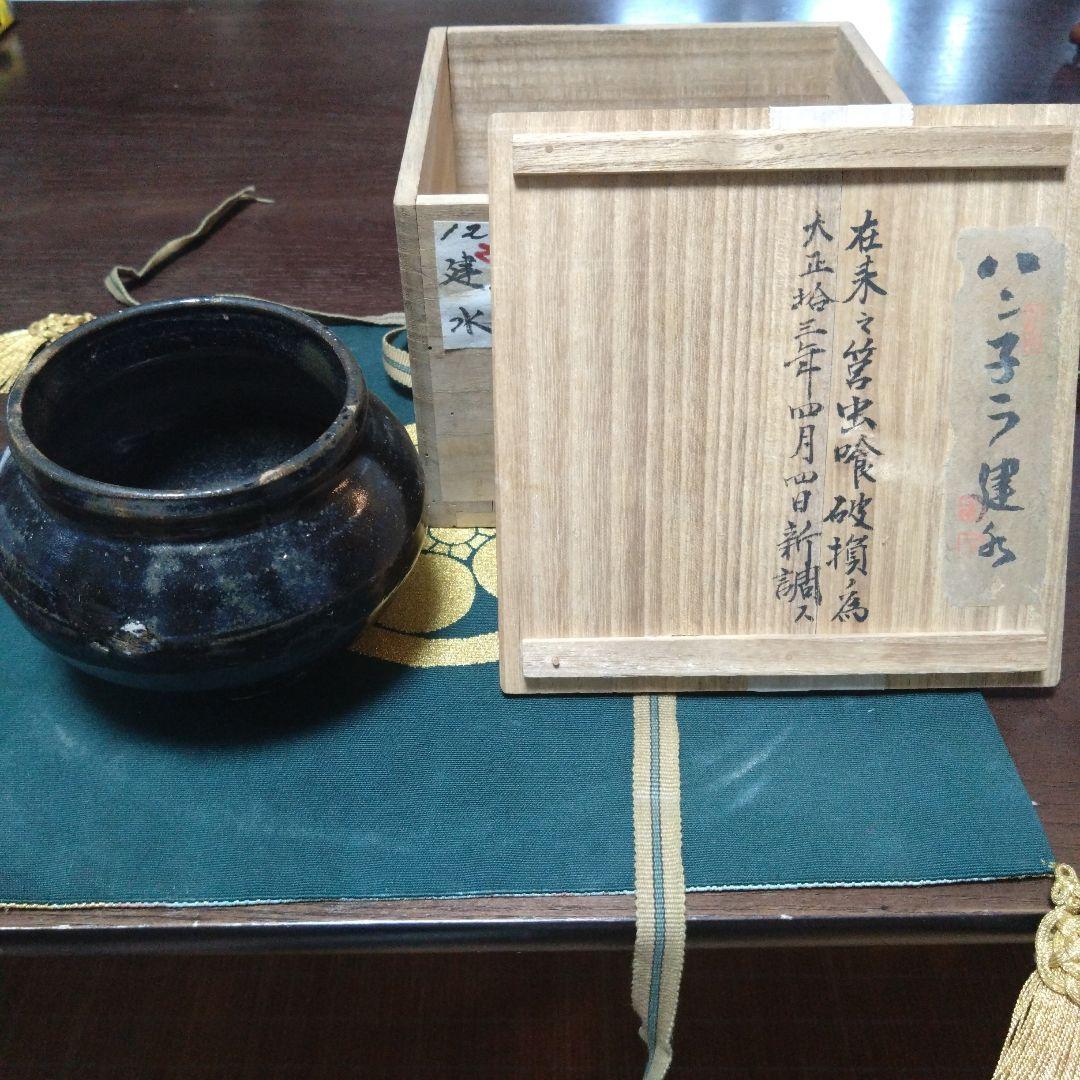 ハンネラ建水
在来之筥虫喰破損ノ為
大正拾三年四月四日新調ス
12
建
水